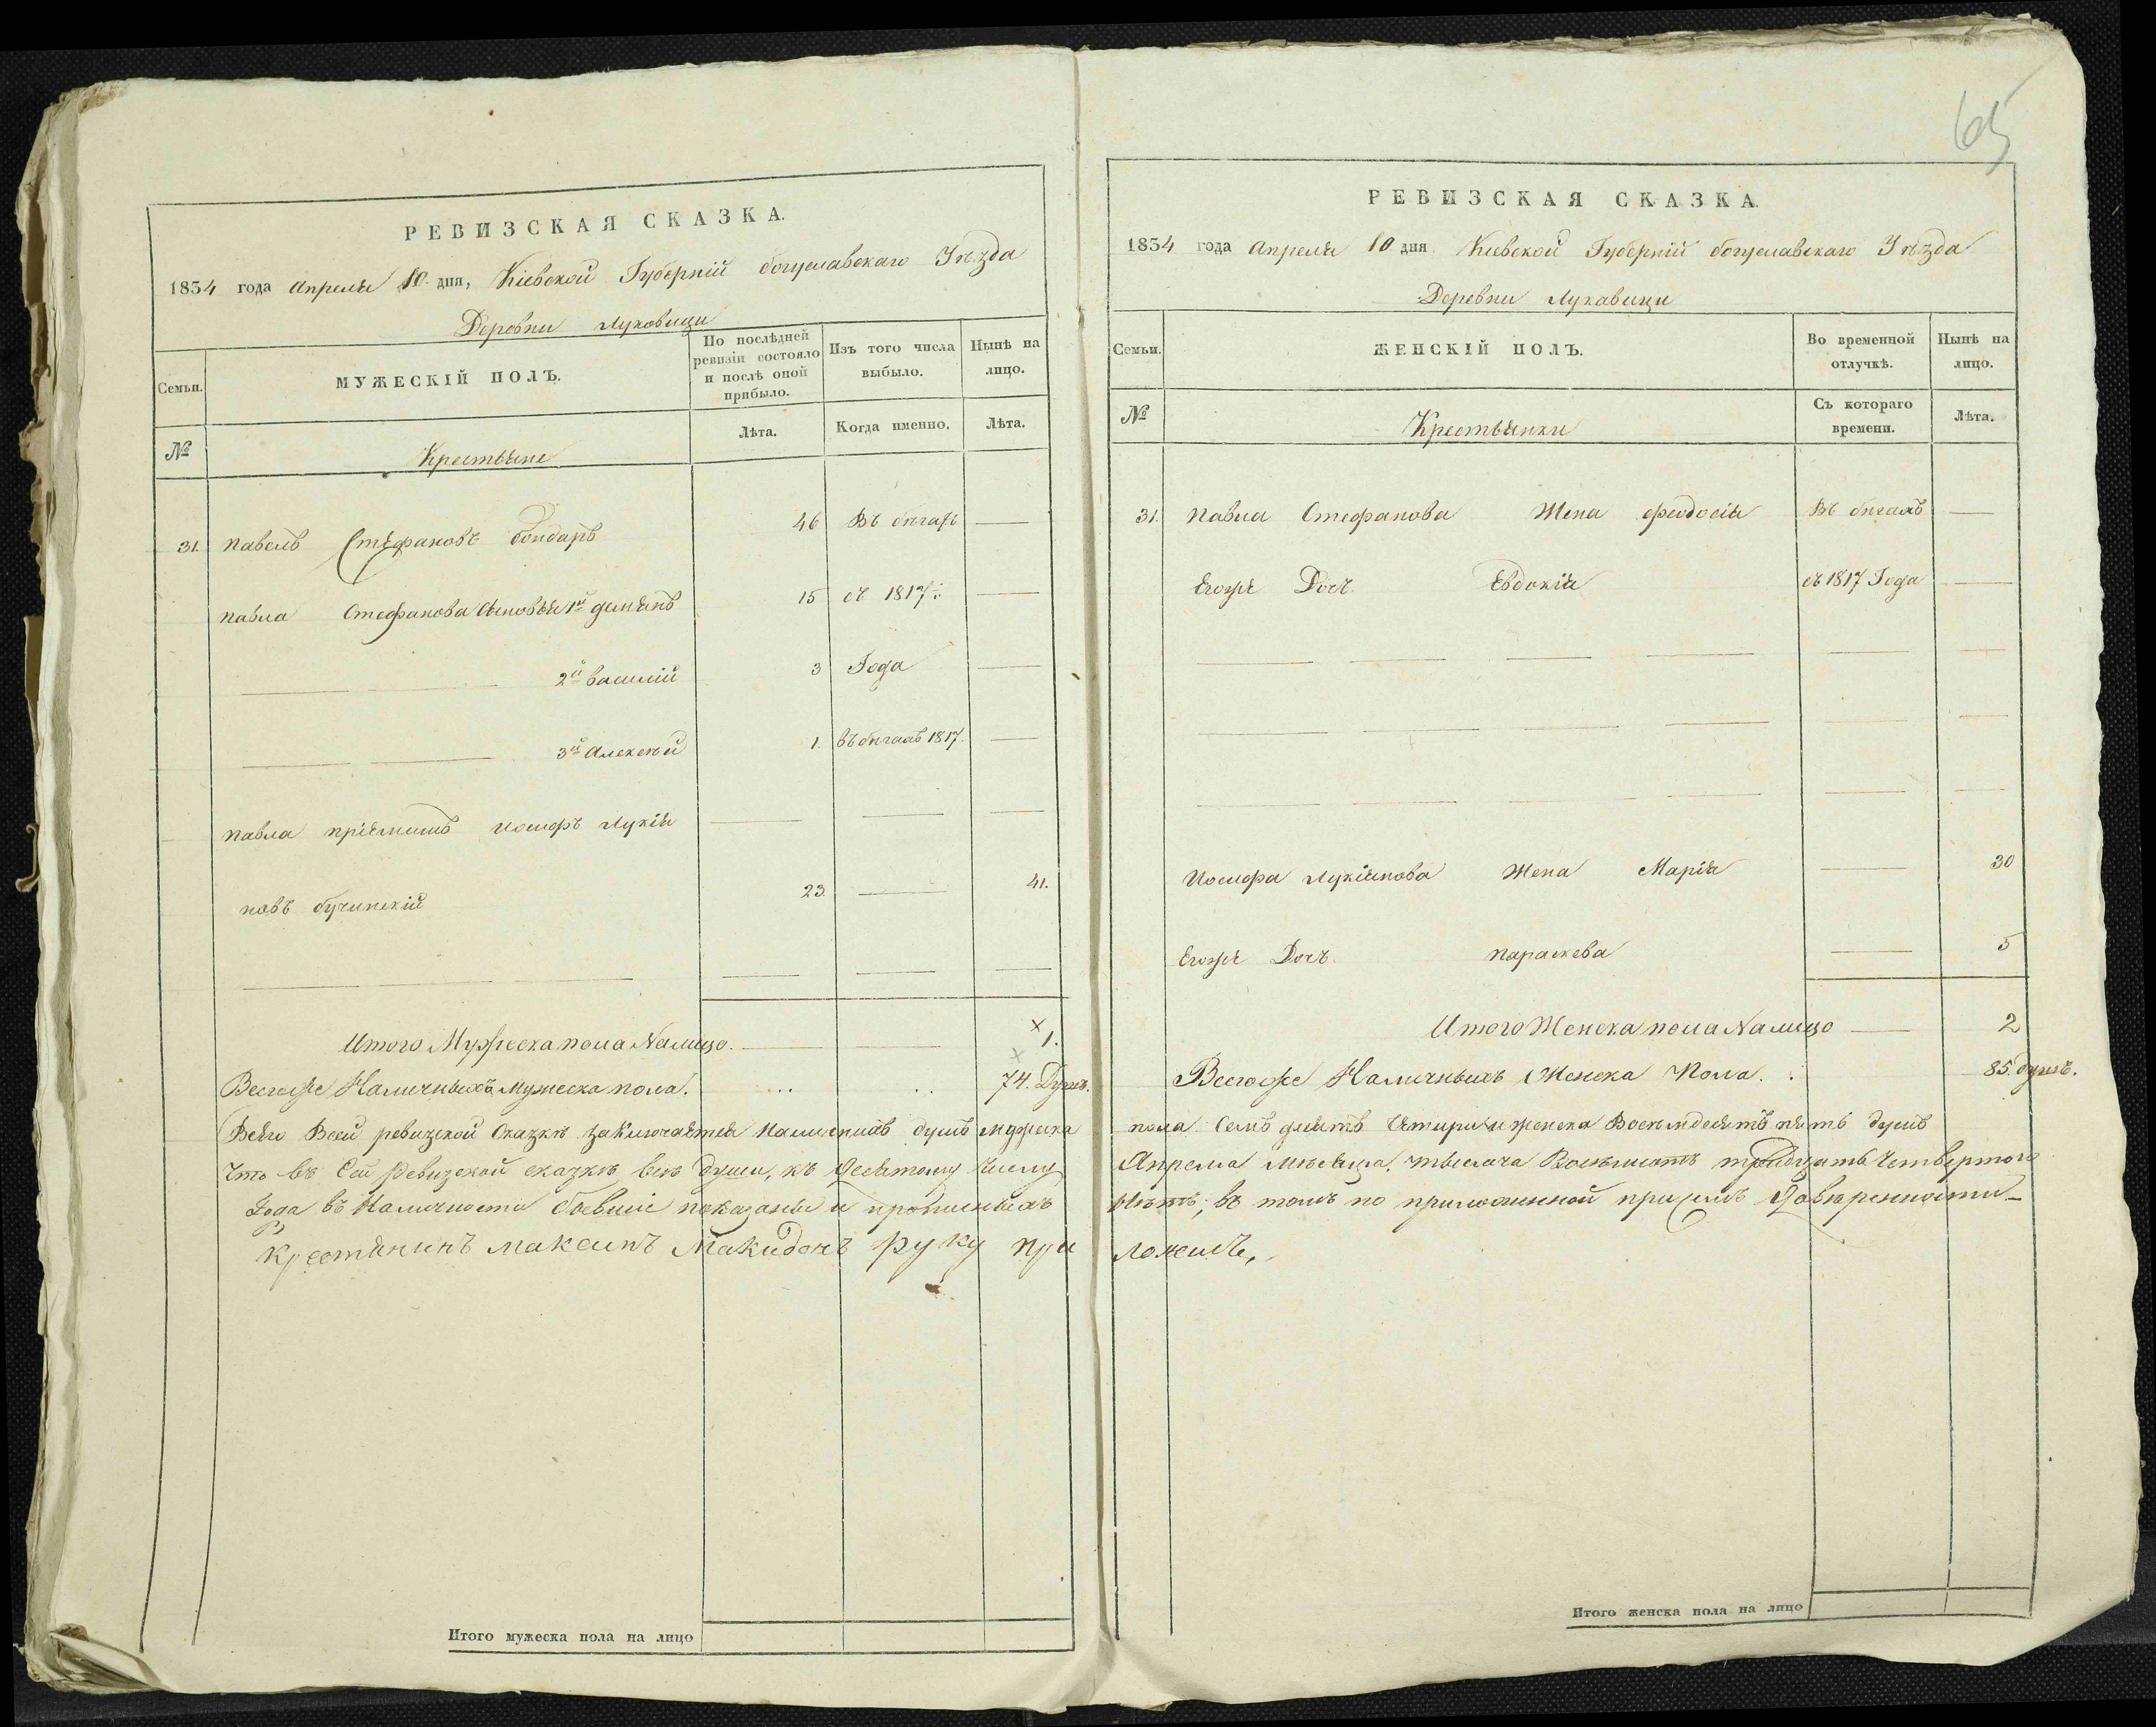 РЕВИЗСКАЯ СКАЗКА.
1834 года Апреля 10 дня, Кіевской Губерніи богуславскаго Уѣзда
Деревни Луковици
Семьи.
МУЖЕСКІЙ ПОЛЪ.
По послѣдней ревизіи состояло и послѣ оной прибыло.
Изъ того числа выбыло.
Нынѣ на лицо.
№
Крестьяне
Лѣта.
Когда именно.
Лѣта.
31. павелъ Стефановъ бондарь 46 Въ бѣгахъ
павла Стефанова Сыновья 1й демянъ 15 съ 1817:
2й василій 3 Года
3й Алексѣй 1. въ бѣгахъ 1817.
павла пріемышъ иосифъ Лукія
новъ бучинскій 23. 41.
Итого Мужеска пола Налицо. 1.
Всегоже Наличныхъ мужеска пола. 74. Душъ.
Всего Всей ревизской Сказкѣ заключается наличныхъ душъ мужеска
Что въ Сей Ревизской сказкѣ всѣ души, къ Десятому числу
Года въ Наличности бывшіе показаны и прописныхъ
Крестянинъ максимъ Македонъ руку при
Итого мужеска пола на лицо
65
РЕВИЗСКАЯ СКАЗКА.
1834 года Апреля 10 дня Кіевской Губерніи богуславскаго Уѣзда
Деревни Лукавици
Семьи.
ЖЕНСКІЙ ПОЛЪ.
Во временной отлучкѣ.
Нынѣ на лицо.
№
Крестьянки
Съ котораго времени.
Лѣта.
31. павла Стефанова Жена феодосія Въ бѣгахъ
Егоже Дочь Евдокія съ 1817 Года
Иосифа Лукіянова Жена Марія 30
Егоже Дочь параскева 5
Итого Женска пола Налицо 2
Всегоже Наличныхъ Женска Пола. 85. душъ.
пола Семъ десятъ Четыри и женска Восемдесятъ пять душъ
Апреля мѣсяца. тысяча Восемьсотъ тридцать Четвертого
Нѣтъ; въ томъ по приложенной при семъ Доверенности
ложилъ,
Итого женска пола на лицо